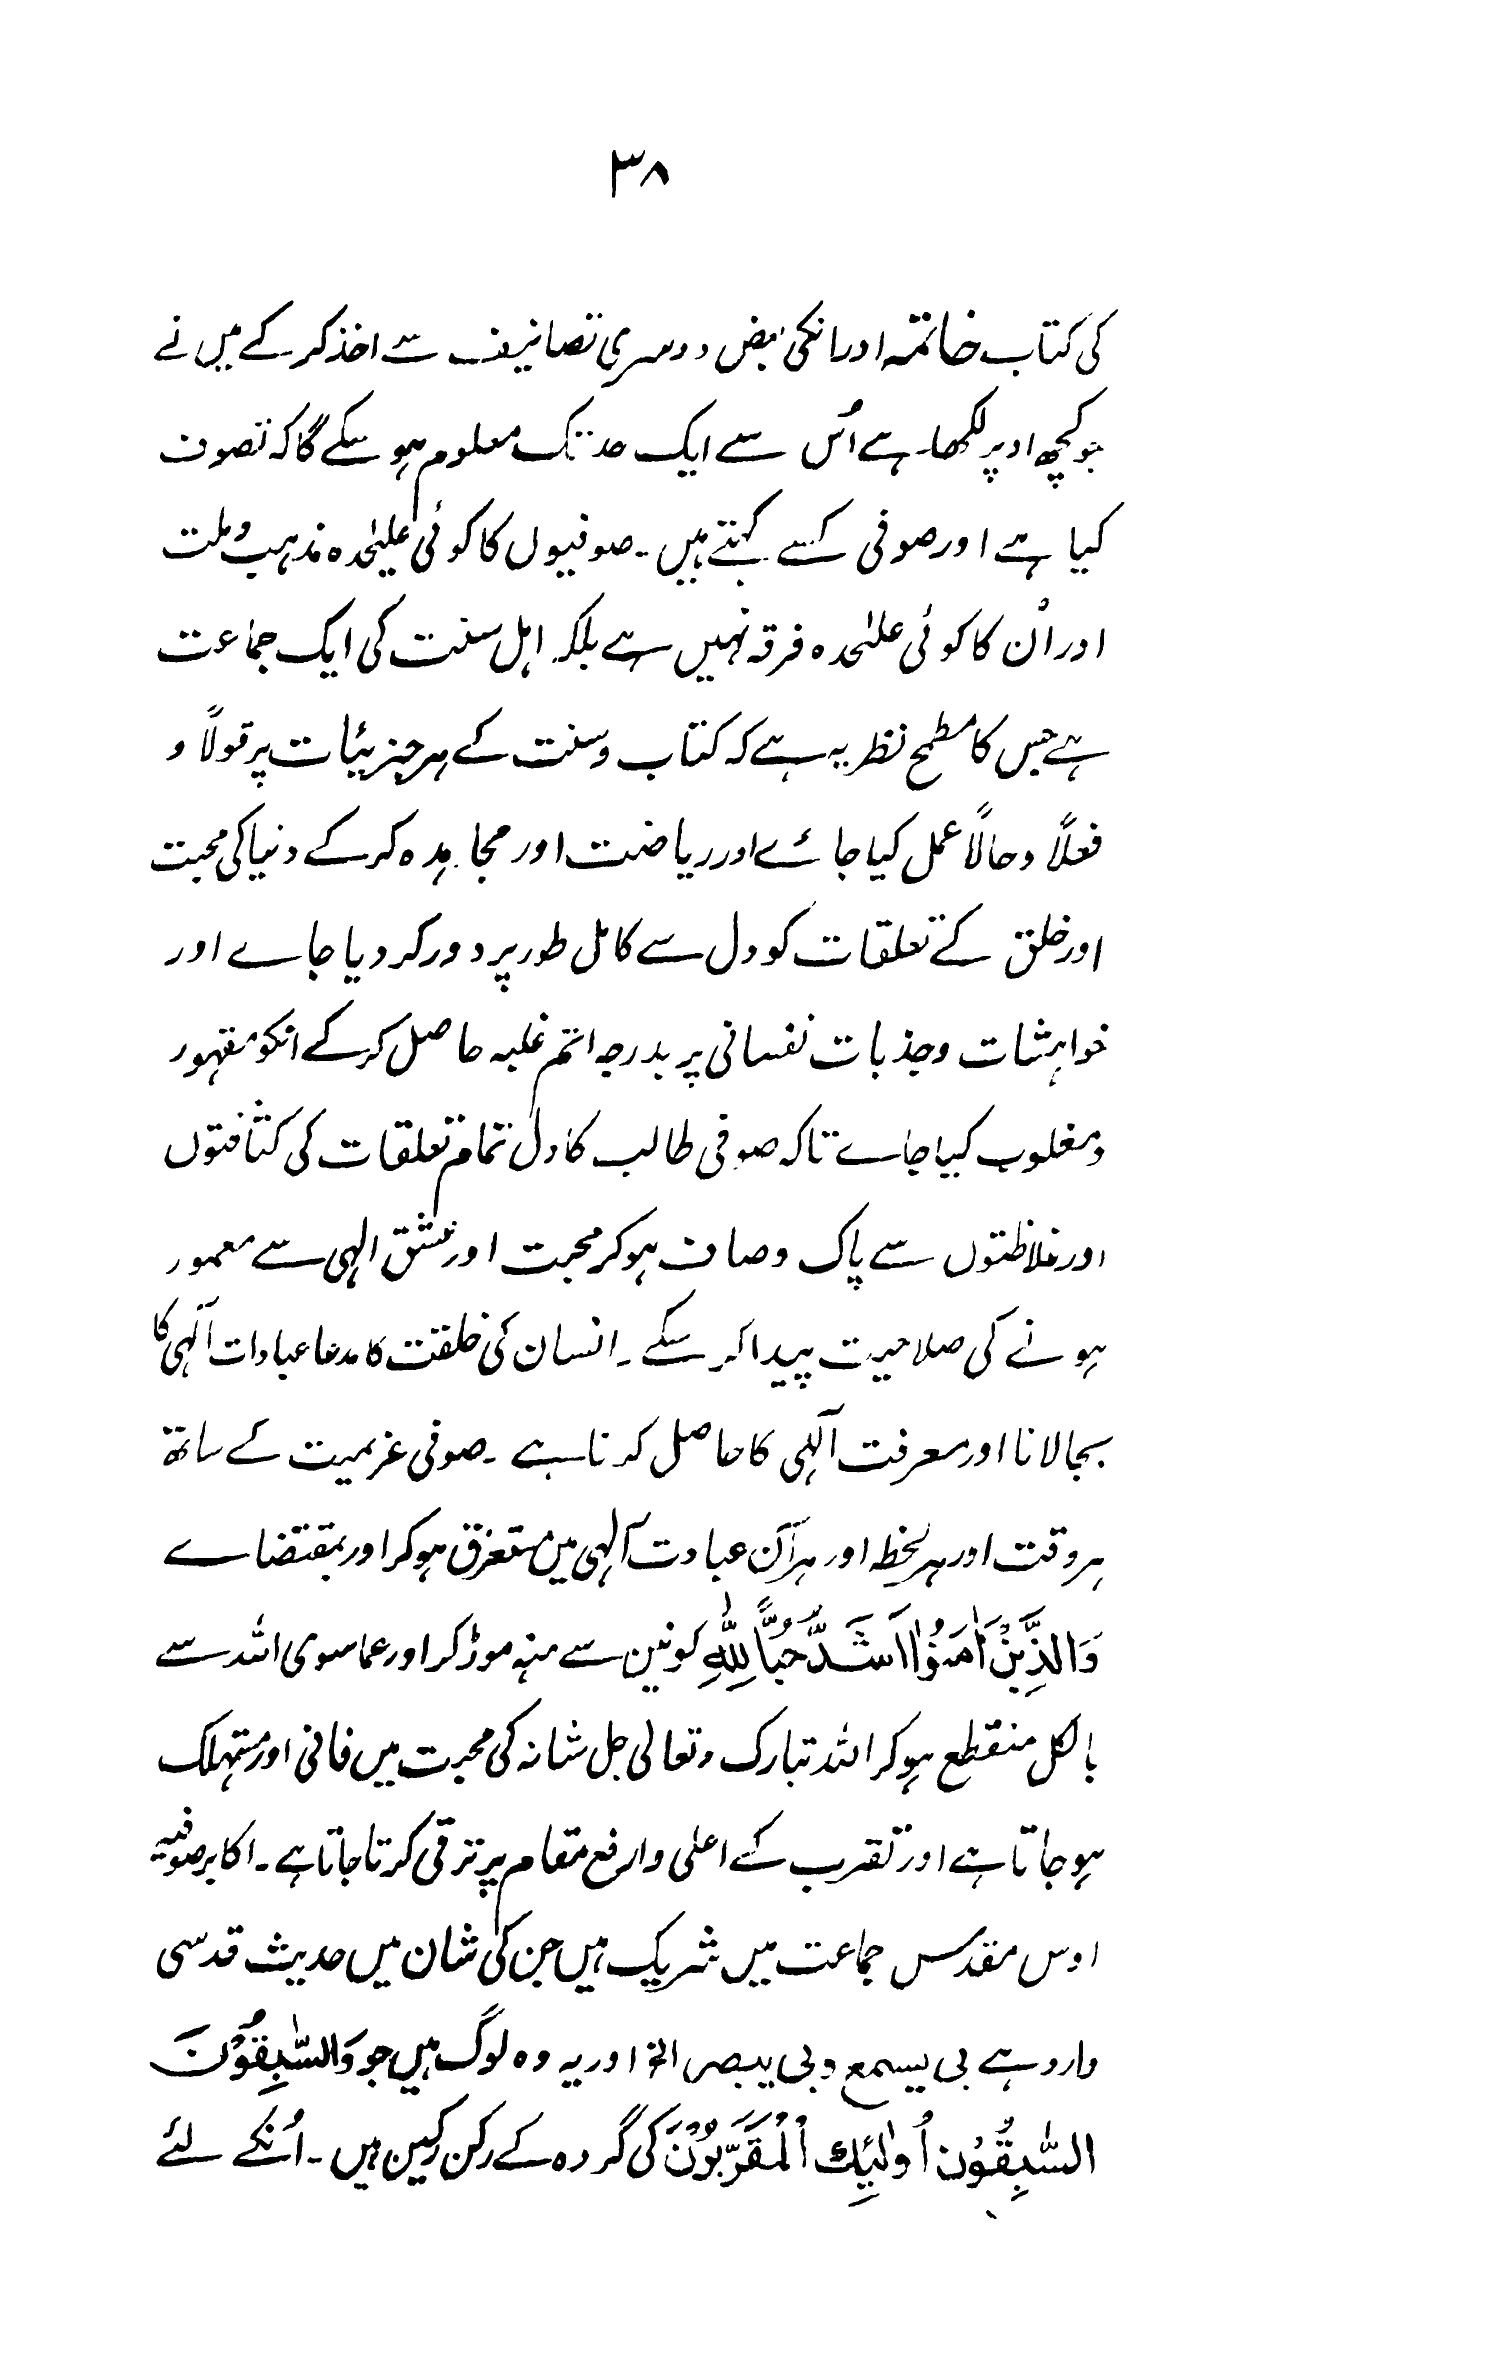 ۳۸
کی کتاب خاتمہ اور انکی بعض دوسری تصانیف سے اخذ کر کے میں نے
جو کچھ اوپر لکھا ہے اُس سے ایک حد تک معلوم ہو سکے گا کہ تصوف
کیا ہے اور صوفی کسے کہتے ہیں ۔ صوفیوں کا کوئی علیٰحدہ مذہب و ملت
اور اُن کا کوئی علیٰحدہ فرقہ نہیں ہے بلکہ اہل سنت کی ایک جماعت
ہے جس کا مطمح نظر یہ ہے کہ کتاب و سنت کے ہر جزئیات پر قولاً و
فعلاً و حالاً عمل کیا جائے اور ریاضت اور مجاہدہ کر کے دنیا کی محبت
اور خلق کے تعلقات کو دل سے کامل طور پر دور کر دیا جاے اور
خواہشات و جذبات نفسانی پر بدرجہ اتم غلبہ حاصل کر کے انکو مقہور
و مغلوب کیا جاے تاکہ صوفی طالب کا دل تمام تعلقات کی کثافتوں
اور غلاظتوں سے پاک و صاف ہو کر محبت اور عشق الہی سے معمور
ہونے کی صلاحیت پیدا کر سکے ۔ انسان کی خلقت کا مدعا عبادات آلہی کا
بجا لانا اور معرفت آلہی کا حاصل کرنا ہے ۔ صوفی عزیمیت کے ساتھ
ہر وقت اور ہر لحظہ اور ہر آن عبادت آلہی میں مستغرق ہو کر اور بمقتضاے
وَالَّذِیْنَ اٰمَنُوْا اَشَدُّ حُبًّا لِلّٰہِ کونین سے منہ موڑ کر اور عما سوی اللہ سے
بالکل منقطع ہو کر اللہ تبارک و تعالی جل شانہ کی محبت میں فانی اور مستہلک
ہو جاتا ہے اور تقرب کے اعلی و ارفع مقام پر ترقی کرتا جاتا ہے ۔ اکابر صوفیہ
اوس مقدس جماعت میں شریک ہیں جن کی شان میں حدیث قدسی
وارد ہے بی یسمع و بی یبصر الخ اور یہ وہ لوگ ہیں جو وَالسّٰبِقُوْنَ
السّٰبِقُوْن اُولٰئِکَ الْمُقَرَّبُوْنَ کی گروہ کے رکن رکین ہیں ۔ اُنکے لئے